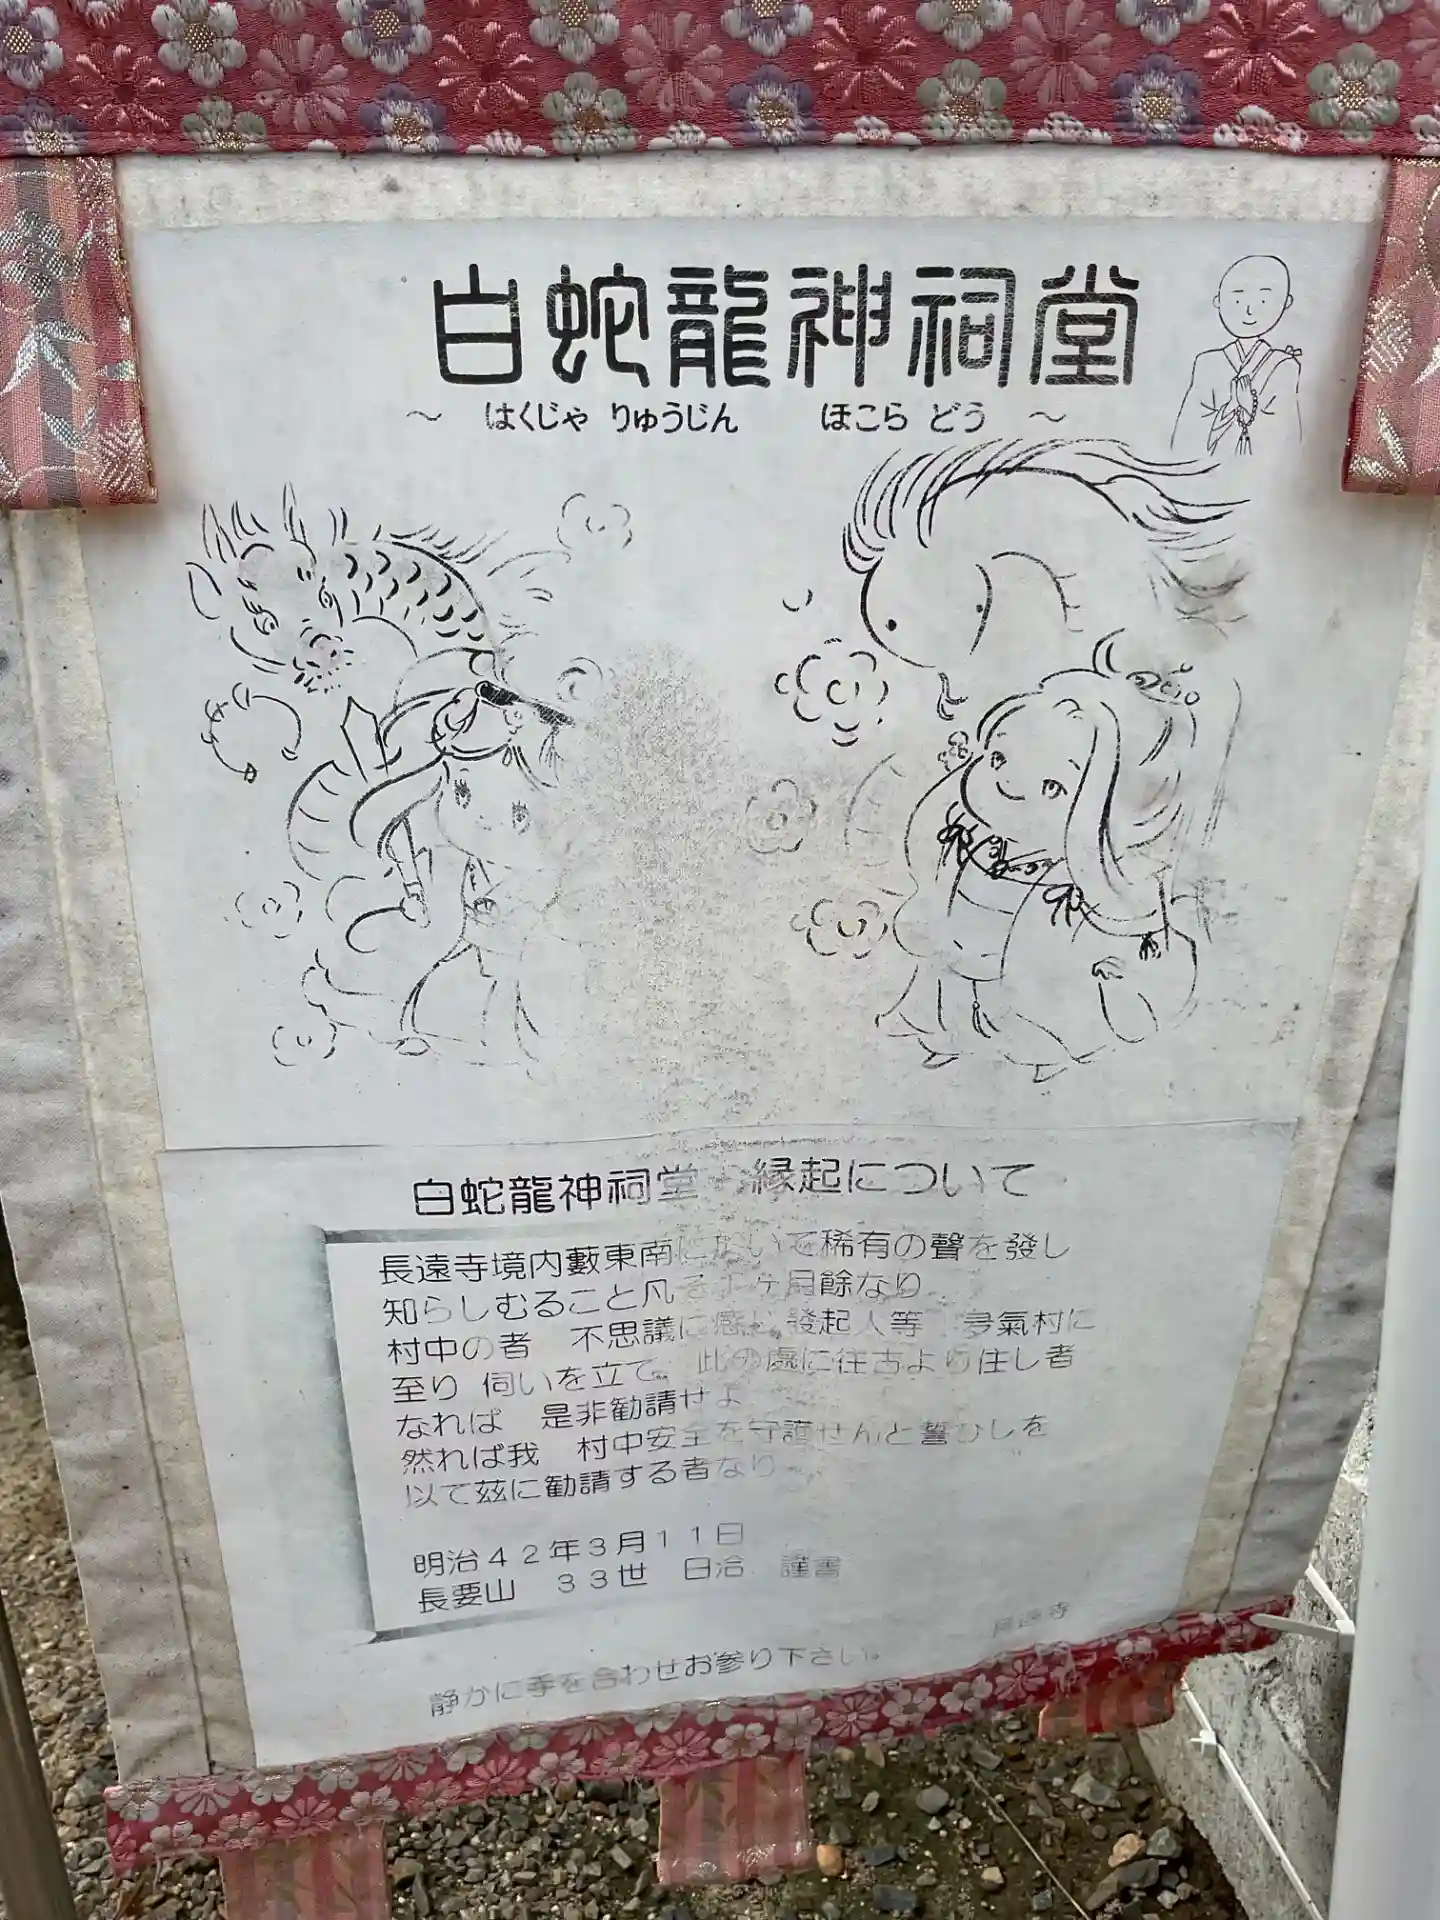 白蛇龍神祠堂
～ はくじゃ りゅうじん ほこら どう ～
白蛇龍神祠堂 縁起について
長遠寺境内藪東南において稀有の聲を發し
知らしむること凡そ ヶ月餘なり
村中の者 不思議に感じ發起人等 多氣村に
至り 伺いを立て 此の處に往古より住し者
なれば 是非勧請せよ
然れば我 村中安全を守護せんと誓ひしを
以て茲に勧請する者なり
明治４２年３月１１日
長要山 ３３世 日治 謹書
長遠寺
静かに手を合わせお参り下さい。